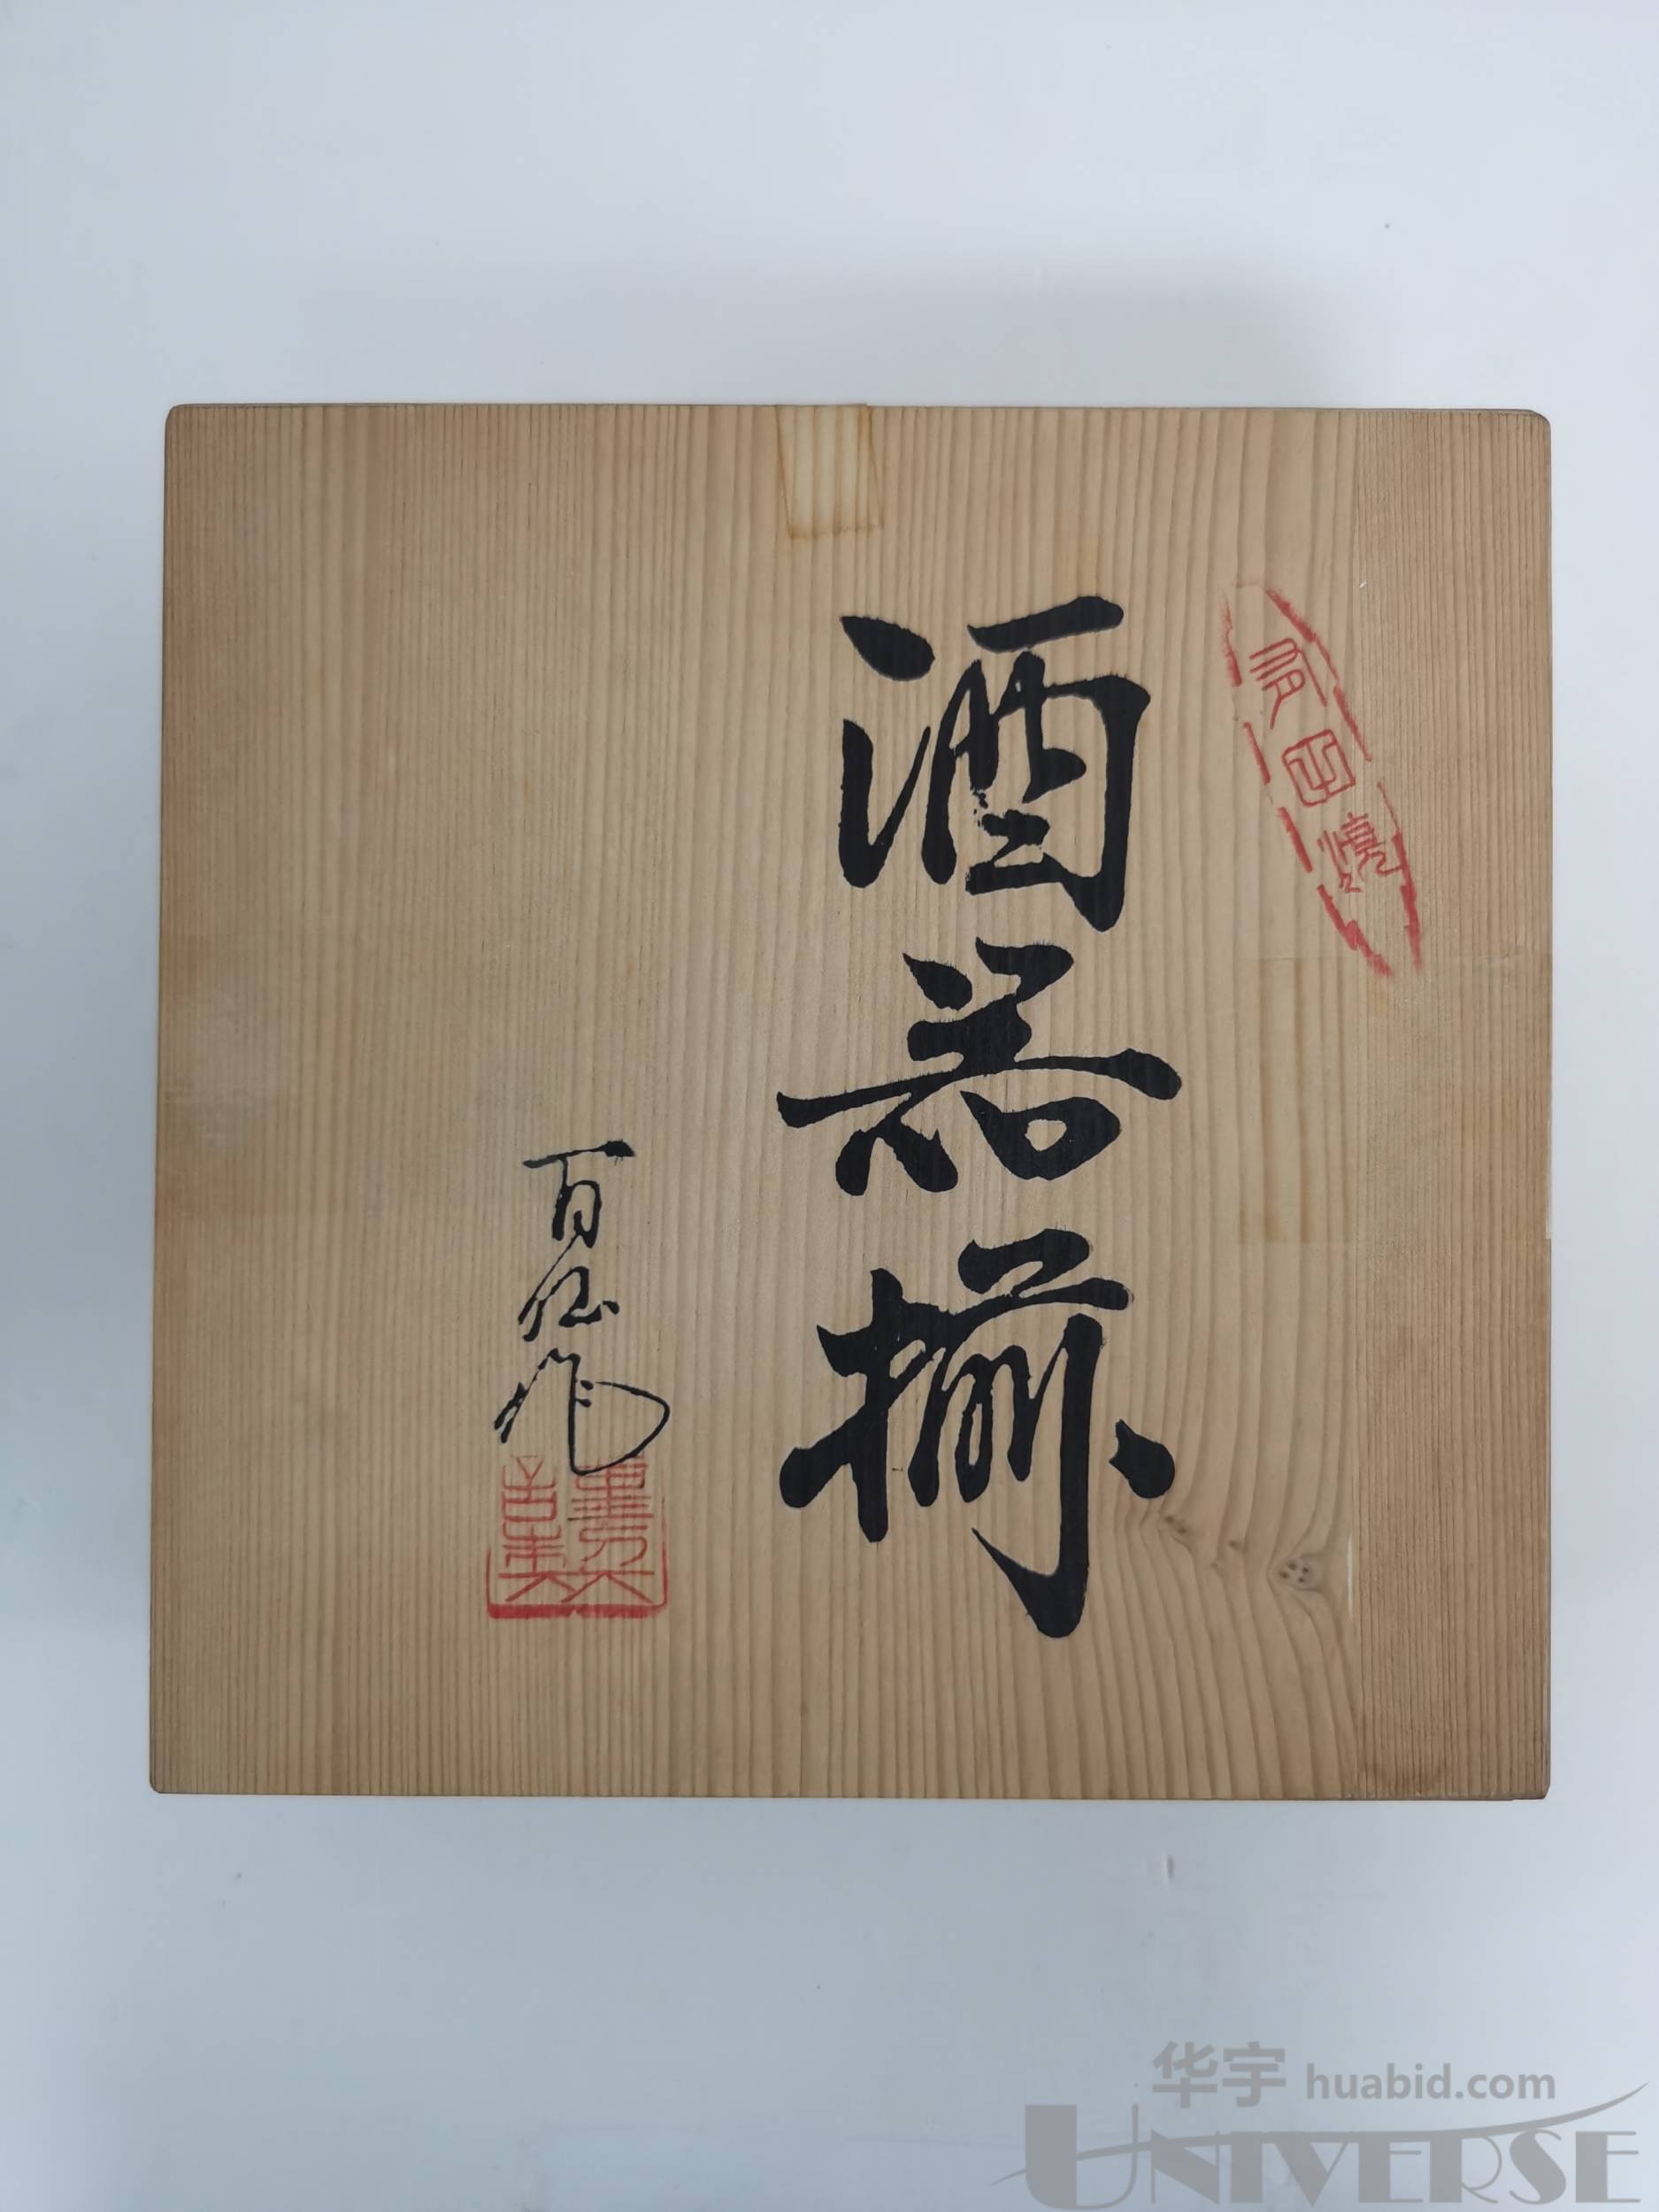 有田焼
酒器揃
百仙作
华宇 huabid.com
UNIVERSE